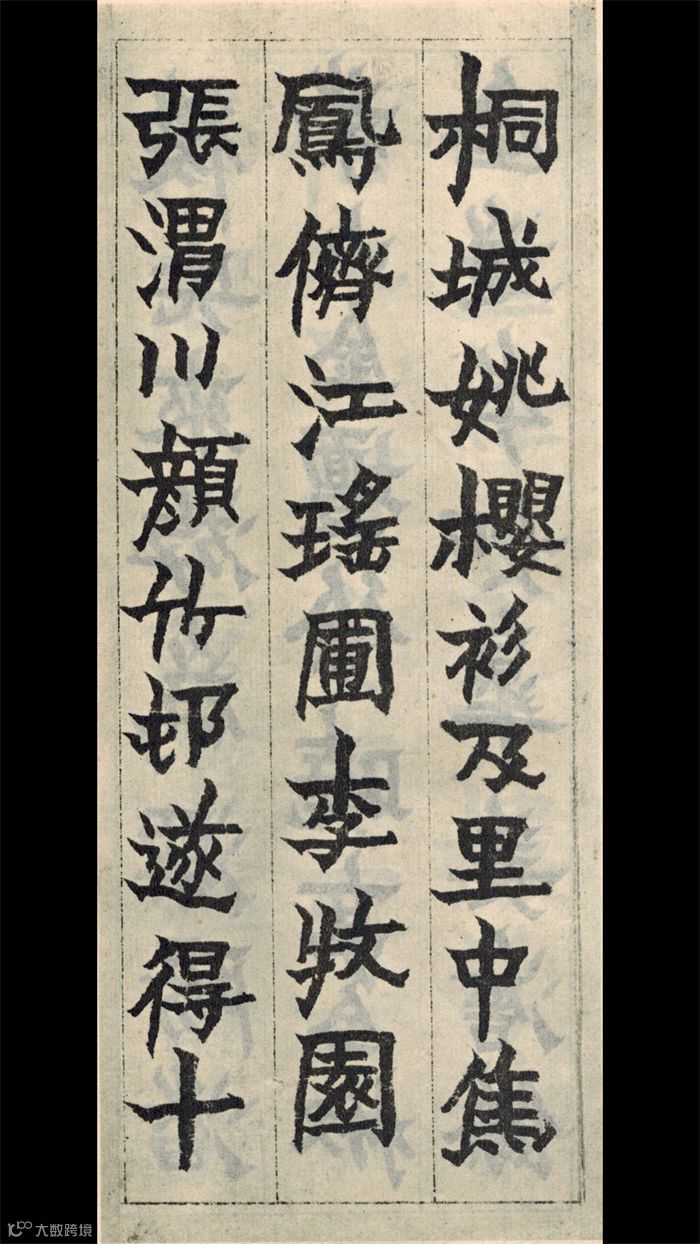 桐城姚櫻衫及里中焦
鳳儕江瑤圃李牧園
張渭川顏竹邨遂得十
大数跨境